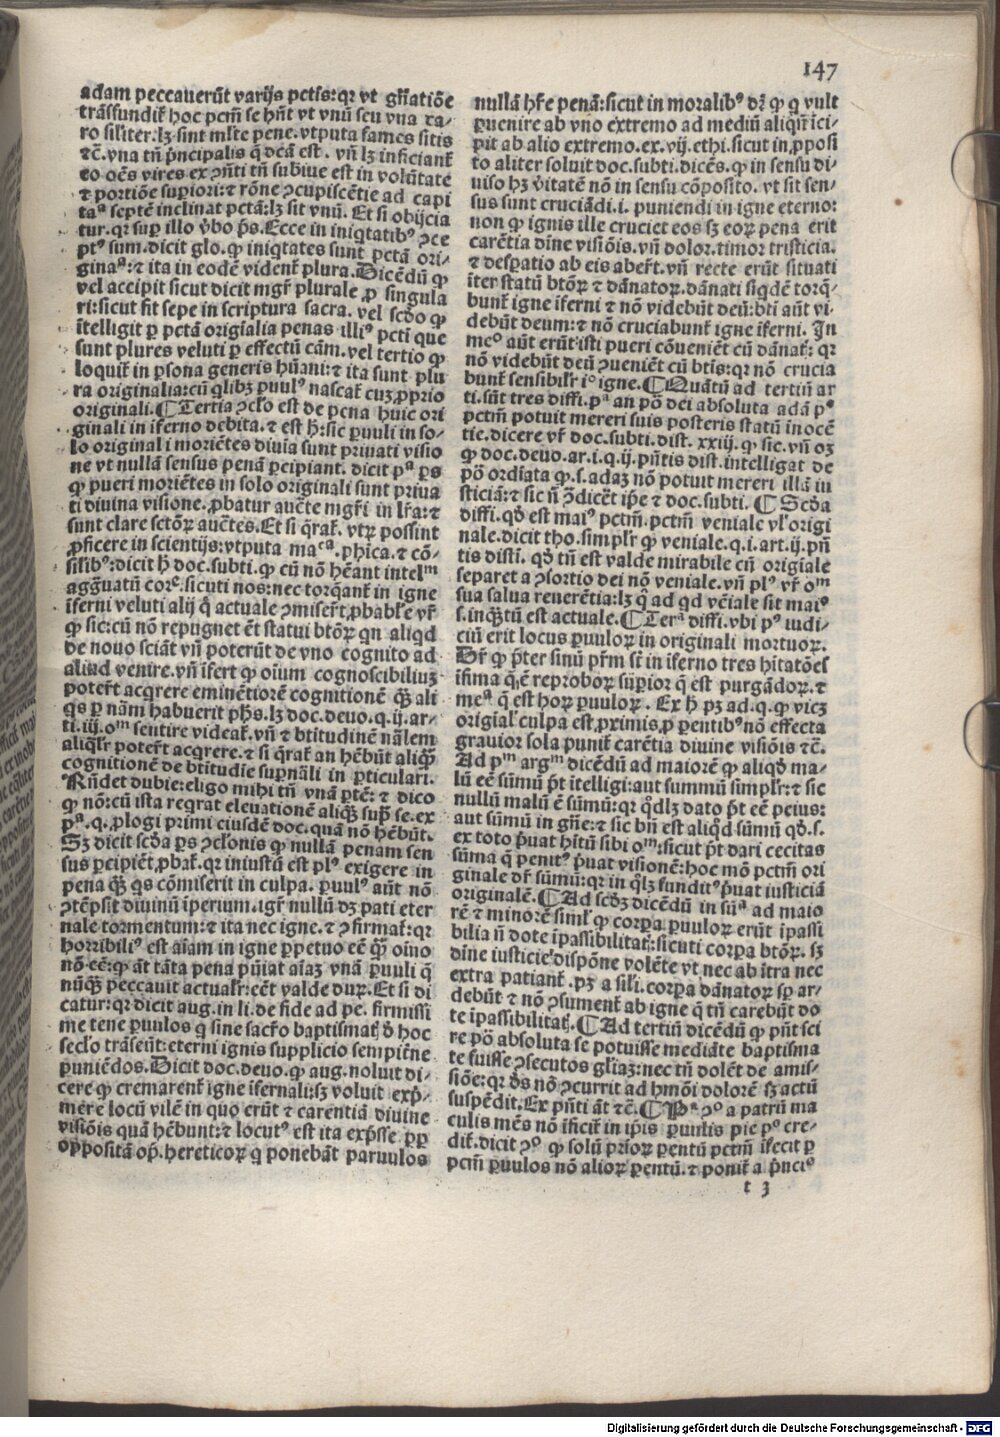 147
adam peccauerūt varijs pctīs: qꝛ vt gn̄atiōe
trāsfundit̄ hoc pctm̄ se hn̄t vt vnū seu vna ra-
ro sil̄iter. lꝫ sint ml̄te pene. vtputa fames sitis
⁊c̄. vna tn̄ p̄ncipalis q̄ dc̄a est. vn̄ lꝫ inficiant̄
eo oēs vires ex ꝯn̄ti tn̄ subiue est in volūtate
⁊ portiōe suꝑiori: ⁊ rōne ꝯcupiscētie ad capi
taª septē inclinat pctā: lꝫ sit vnū. Et si obijcia
tur. qꝛ suꝑ illo v̓bo p̄s. Ecce in iniqtatibꝰ ꝯce
ptꝰ sum. dicit glo. ꝙ iniqtates sunt pctā ori-
ginaª: ⁊ ita in eodē vident̄ plura. Dicēdū ꝙ
vel accipit sicut dicit mgr̄ plurale ꝓ singula
ri: sicut fit sepe in scriptura sacra. vel scd̓o ꝙ
ītelligit ꝑ pctā origīalia penas illiꝰ pctī que
sunt plures veluti ꝑ effectū cām. vel tertio ꝙ
loquit̄ in ꝑsona generis hūani: ⁊ ita sunt plu
ra originalia: cū qlibꝫ puulꝰ nascat̄ cuꝫ ꝓprio
originali. ¶ Tertia ꝯclo̓ est de pena huic ori
ginali in iferno debita. ⁊ est h̄: sic ꝑuuli in so-
lo originali moriētes diuīa sunt priuati visio
ne vt nullā sensus penā ꝑcipiant. dicit pª ꝑs
ꝙ pueri moriētes in solo originali sunt priua
ti diuina visione. ꝓbatur auct̄e mgr̄i in lr̄a: ⁊
sunt clare sctōꝝ auct̄es. Et si q̄rat̄. vtꝝ possint
ꝓficere in scientijs: vtputa maᶜª. phica. ⁊ cō-
silibꝰ: dicit h̄ doc. subti. ꝙ cū nō hēant intelᵐ
agg̓uatū corᵉ. sicuti nos: nec torq̄ant̄ in igne
īferni veluti alij q̄ actuale ꝯmiser̄t ꝓbabl̓e vr̄
ꝙ sic: cū nō repugnet ēt statui btōꝝ qn aliqd
de nouo sciāt vn̄ poterūt de vno cognito ad
aliud venire. vn̄ īfert ꝙ oīum cognoscibiliuꝫ
potert̄ acqrere eminētiorē cognitionē q̄ꝫ ali
qs ꝑ nām habuerit ph̄s. lꝫ doc. deuo. q. ij. ar-
ti. iij. oᵐ sentire videat̄. vn̄ ⁊ btitudinē nāl̄em
aliqlr̄ potert̄ acqrere. ⁊ si q̄rat̄ an hēbūt aliq̄ꝫ
cognitionē de btitudīe suꝑnāli in ꝑticulari.
Rn̄det dubie: eligo mihi tn̄ vnā ꝑtē: ⁊ dico
ꝙ nō: cū ista reqrat eleuationē aliq̄ꝫ supͣ se. ex
pª. q. ꝓlogi primi eiusdē doc. quā nō hēbūt.
Sꝫ dicit scd̓a ꝑs ꝯclōnis ꝙ nullā penam sen
sus ꝑcipiēt. ꝓbat̄. qꝛ iniustū est plꝰ exigere in
pena q̄ꝫ qs cōmiserit in culpa. ꝑuulꝰ aūt nō
ꝯtēpsit diuinū īperium. igr̄ nullū dꝫ pati eter
nale tormentum: ⁊ ita nec igne. ⁊ ꝯfirmat̄: qꝛ
horribiliꝰ est aīam in igne ꝑpetuo eē q̄ꝫ oīno
nō eē: ꝙ āt tāta pena pūiat aīaꝫ vnā ꝑuuli q̄
nūq̄ꝫ peccauit actualr̄: eēt valde duꝝ. Et si di
catur: qꝛ dicit aug. in li. de fide ad pe. firmissi
me tene ꝑuulos q sine sacr̄o baptismatꝭ d̓ hoc
seclo̓ trāseūt: eterni ignis supplicio sempit̄ne
ꝑuniēdos. Dicit doc. deuo. ꝙ aug. noluit di-
cere ꝙ cremarent̄ igne ifernali: sꝫ voluit exp̄-
mere locū vilē in quo erūt ⁊ carentiā diuine
visiōis quā hēbunt: ⁊ locutꝰ est ita exp̄sse ꝓꝑ
oppositā op̄. hereticoꝝ q ponebāt paruulos
nullā hr̄e penā: sicut in moralibꝰ dr̄ ꝙ q vult
ꝑuenire ab vno extremo ad mediū aliqn̄ īci-
pit ab alio extremo. ex. vij. ethi. sicut in ꝓposi
to aliter soluit doc. subti. dicēs. ꝙ in sensu di-
uiso hꝫ v̓itatē nō in sensu cōposito. vt sit sen-
sus sunt cruciādi. i. puniendi in igne eterno:
non ꝙ ignis ille cruciet eos sꝫ eoꝝ pena erit
carētia dīne visiōis. vn̄ dolor. timor tristicia.
⁊ desꝑatio ab eis abert̄. vn̄ recte erūt situati
īter statū btōꝝ ⁊ dānatoꝝ. dānati siqdē torq̄-
bunt̄ igne iferni ⁊ nō videbūt deū: bti aūt vi-
debūt deum: ⁊ nō cruciabunt̄ igne iferni. In
meᵒ aūt erūt isti pueri cōueniēt cū dānat̄: qꝛ
nō videbūt deū ꝯueniēt cū btis: qꝛ nō crucia
bunt̄ sensibilr̄ iᵒ igne. ¶ Quātū ad tertiū ar
ti. sūt tres diffi. pª an pō dei absoluta adā pᵒ
pctm̄ potuit mereri suis posteris statū inocē
tie. dicere vr̄ doc. subti. dist. xxiij. ꝙ sic. vn̄ oꝫ
ꝙ doc. deuo. ar. i. q. ij. pn̄tis dist. intelligat de
pō ordīata ꝙ. s. adaꝫ nō potuit mereri illā iu
sticiā: ⁊ sic n̄ ꝯ̄dicēt ip̄e ⁊ doc. subti. ¶ Scd̓a
diffi. qd̓ est maiꝰ pctm̄. pctm̄ veniale vl̓ origi
nale. dicit tho. simplr̄ ꝙ veniale. q. i. art. ij. pn̄
tis distī. qd̓ tn̄ est valde mirabile cū origīale
separet a ꝯsortio dei nō veniale. vn̄ plꝰ vr̄ oᵐ
sua salua reuerētia: lꝫ q̄ ad qd vēiale sit maiꝰ
s. inq̄ꝫtū est actuale. ¶ Terª diffi. vbi pꝰ iudi-
ciū erit locus ꝑuuloꝝ in originali mortuoꝝ.
Dr̄ ꝙ p̄ter sinū pr̄m st̄ in iferno tres hītatōes
īfima q̄ ē reproboꝝ suꝑior q̄ est purgādoꝝ. ⁊
meª q̄ est hoꝝ ꝑuuloꝝ. Ex h̄ pꝫ ad. q. ꝙ vicꝫ
origīal̓ culpa est ꝓximis ꝓ ꝑentibꝰ nō effecta
grauior sola punit̄ carētia diuine visiōis ⁊c̄.
Ad pᵐ argᵐ dicēdū ad maiorē ꝙ aliqd̓ ma-
lū eē sūmū p̄t ītelligi: aut summū simplr̄: ⁊ sic
nullū malū ē sūmū: qꝛ qd̓lꝫ dato p̄t eē peius:
aut sūmū in gn̄e: ⁊ sic bn̄ est aliqd̓ sūmū qd̓. s.
ex toto p̓uat hītū sibi oᵐ: sicut p̄t dari cecitas
sūma q̄ penitꝰ p̓uat visionē: hoc mō pctm̄ ori
ginale dr̄ sūmū: qꝛ in q̄lꝫ funditꝰ p̓uat iusticiā
originalē. ¶ Ad scd̓ꝫ dicēdū in sūª ad maio
rē ⁊ minorē siml̓ ꝙ corꝑa ꝑuuloꝝ erūt īpassi
bilia n̄ dote īpassibilitatꝭ: sicuti corꝑa btōꝝ. sꝫ
dīne iusticie dispōne volēte vt nec ab ītra nec
extra patiant̄. pꝫ a sil̓i. corꝑa dānatoꝝ sꝑ ar-
debūt ⁊ nō ꝯsument̄ ab igne q̄ tn̄ carebūt do
te īpassibilitatꝭ. ¶ Ad tertiū dicēdū ꝙ pn̄t sci
re pō absoluta se potuisse mediāte baptisma
te fuisse ꝯsecutos gl̓iaꝫ: nec tn̄ dolēt de amis-
siōe: qꝛ d̓s nō ꝯcurrit ad hmōi dolorē sꝫ actū
suspēdit. Ex pn̄ti āt ⁊c̄. ¶ Pª ꝯᵒ a patrū ma
culis mēs nō īficit̄ in ip̄is ꝑuulis pie pᵒ cre-
dit̄. dicit ꝯᵒ ꝙ solū p̓ioꝝ ꝑentū pctm̄ īfecit ꝑ
pctm̄ ꝑuulos nō alioꝝ ꝑentū. ⁊ ponit̄ a p̄nciꝰ
t 3
Digitalisierung gefördert durch die Deutsche Forschungsgemeinschaft - DFG